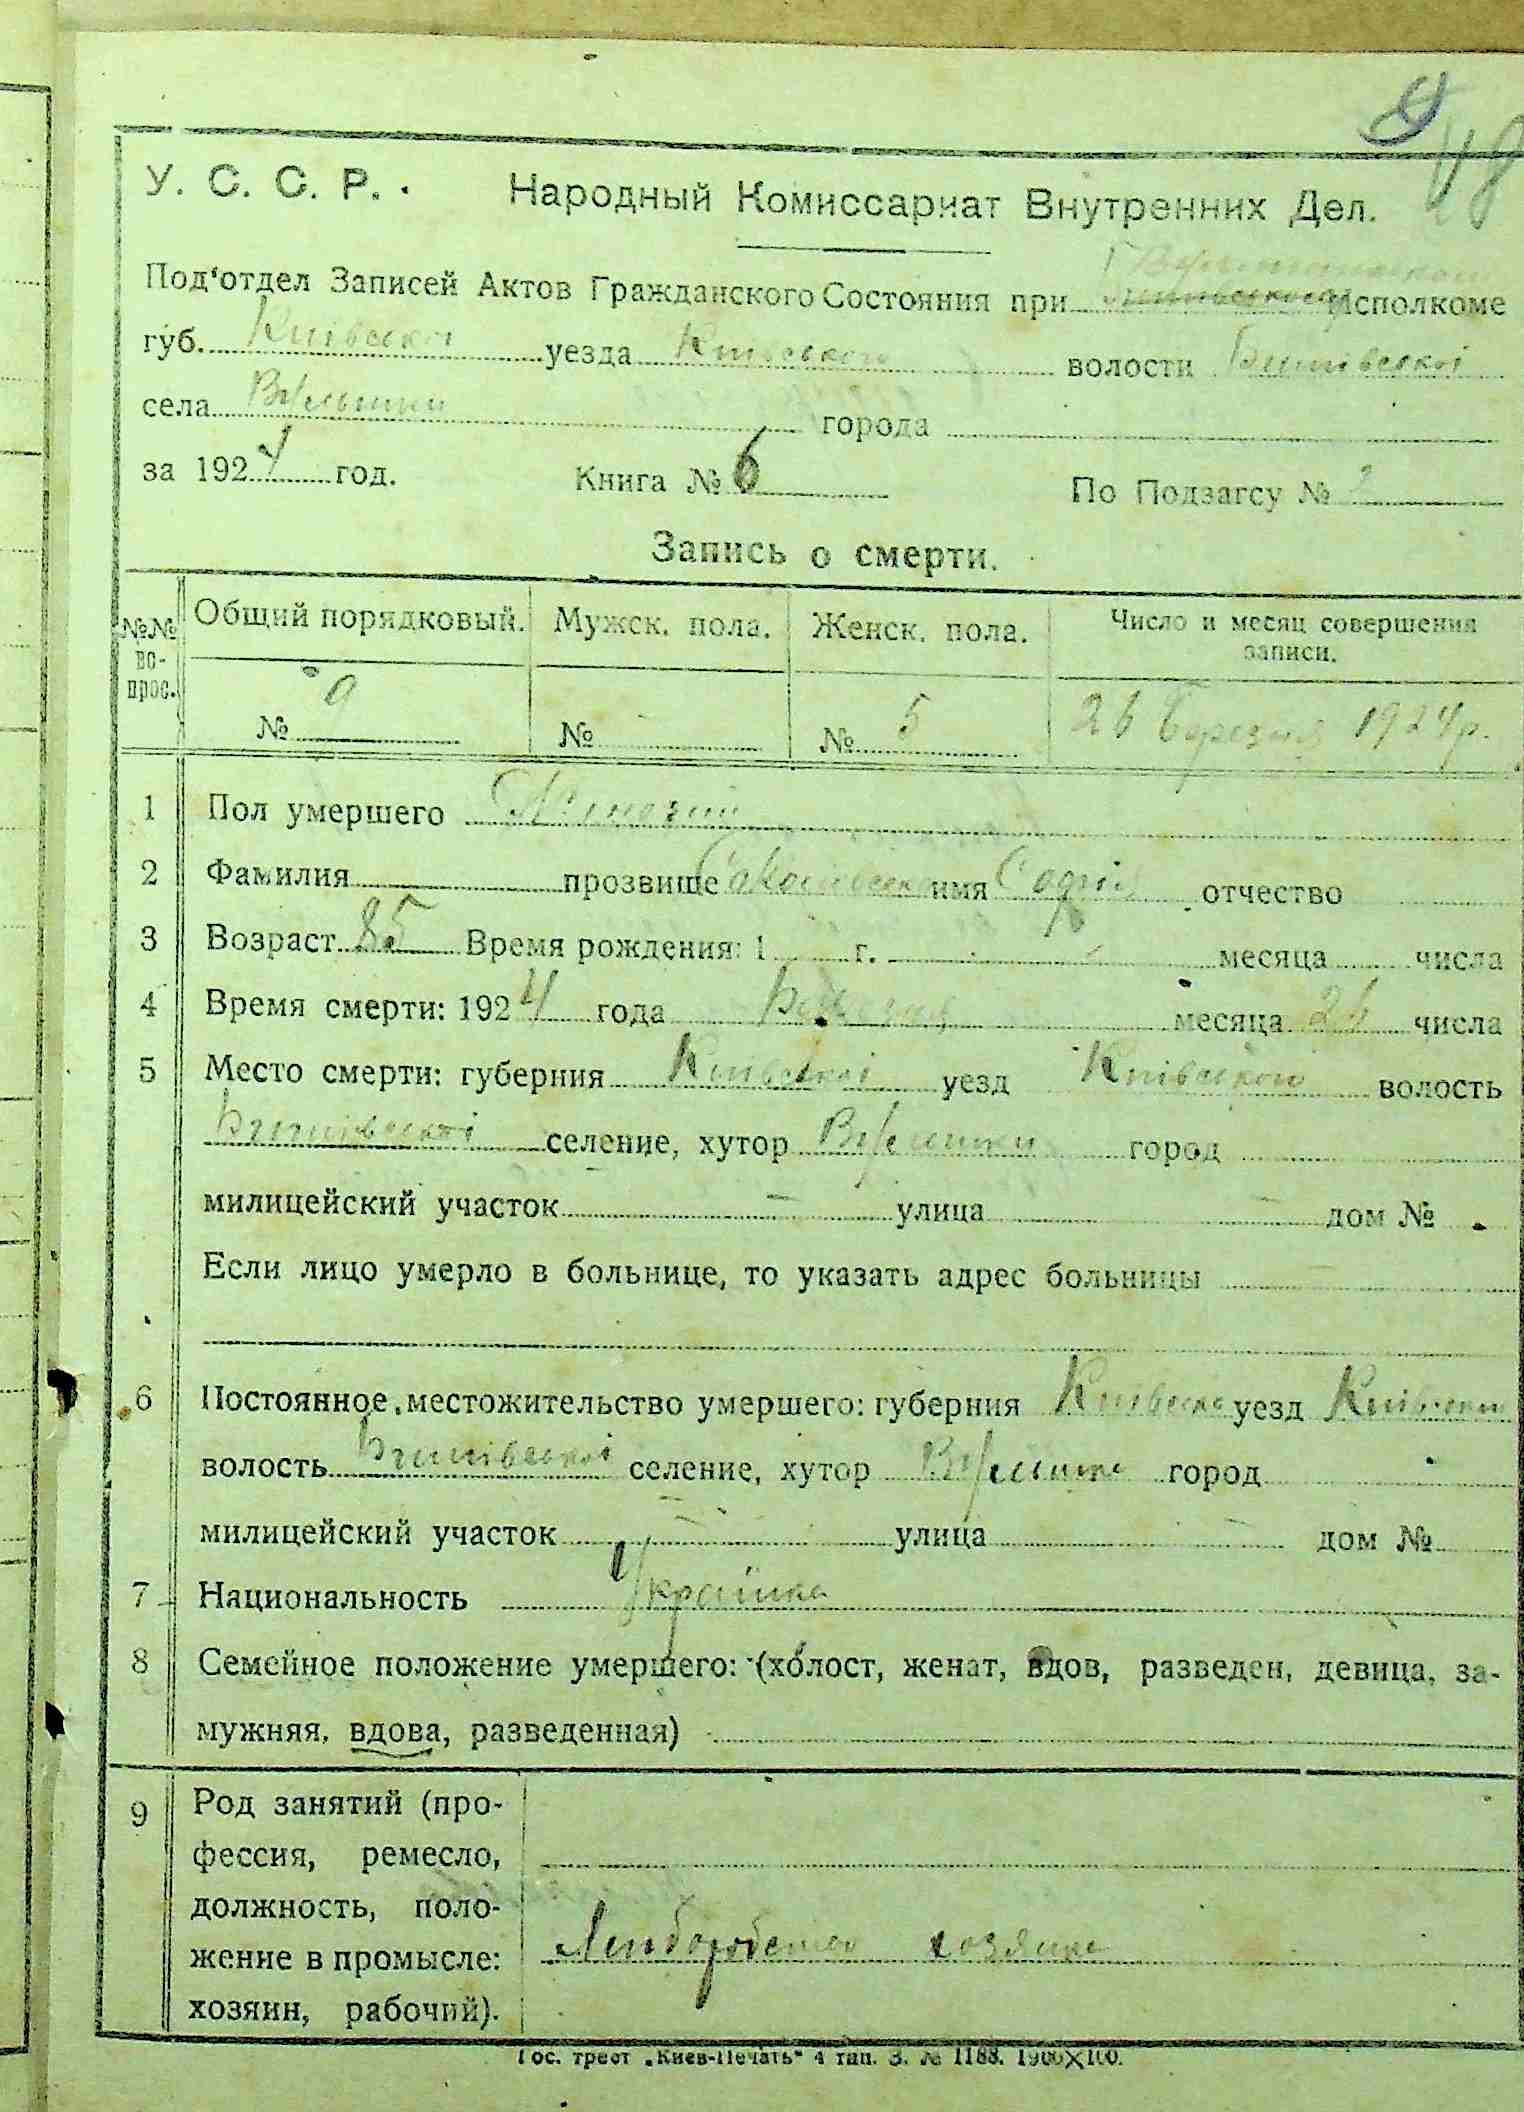 48
У. С. С. Р. Народный Комиссариат Внутренних Дел.
Под'отдел Записей Актов Гражданского Состояния при Исполкоме
губ. Київської уезда Київського волости
села города
за 1924 год. Книга № 6 По Подзагсу № 2
Запись о смерти.
№№ во-прос. Общий порядковый. Мужск. пола. Женск. пола. Число и месяц совершения записи.
№ 9 № № 5 26 Березня 1924 р.
1 Пол умершего
2 Фамилия прозвище имя Софія отчество
3 Возраст 85 Время рождения: 1 г. месяца числа
4 Время смерти: 1924 года Березня месяца 26 числа
5 Место смерти: губерния Київської уезд Київського волость
селение, хутор город
милицейский участок улица дом №
Если лицо умерло в больнице, то указать адрес больницы
6 Постоянное местожительство умершего: губерния уезд
волость селение, хутор город
милицейский участок улица дом №
7 Национальность Українка
8 Семейное положение умершего: (холост, женат, вдов, разведен, девица, за-
мужняя, вдова, разведенная)
9 Род занятий (про-
фессия, ремесло,
должность, поло-
жение в промысле: хозяйка
хозяин, рабочий).
Гос. трест „Киев-Печать" 4 тип. З. № 1188. 1900×100.